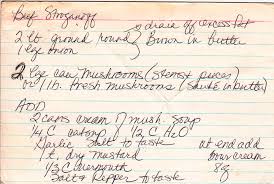 Beef Stroganoff
→ drain off excess fat
2 lb ground round } Brown in butter
1 lge onion
2 lge cans mushrooms (stems & pieces)
or 1 lb. fresh mushrooms (sauté in butter)
ADD
2 cans cream of mush. soup
1/4 C catsup / 1/2 C H2O
Garlic Salt to taste
1 t. dry mustard
1/3 C vermouth
Salt & Pepper to taste
at end add
sour cream
8 oz